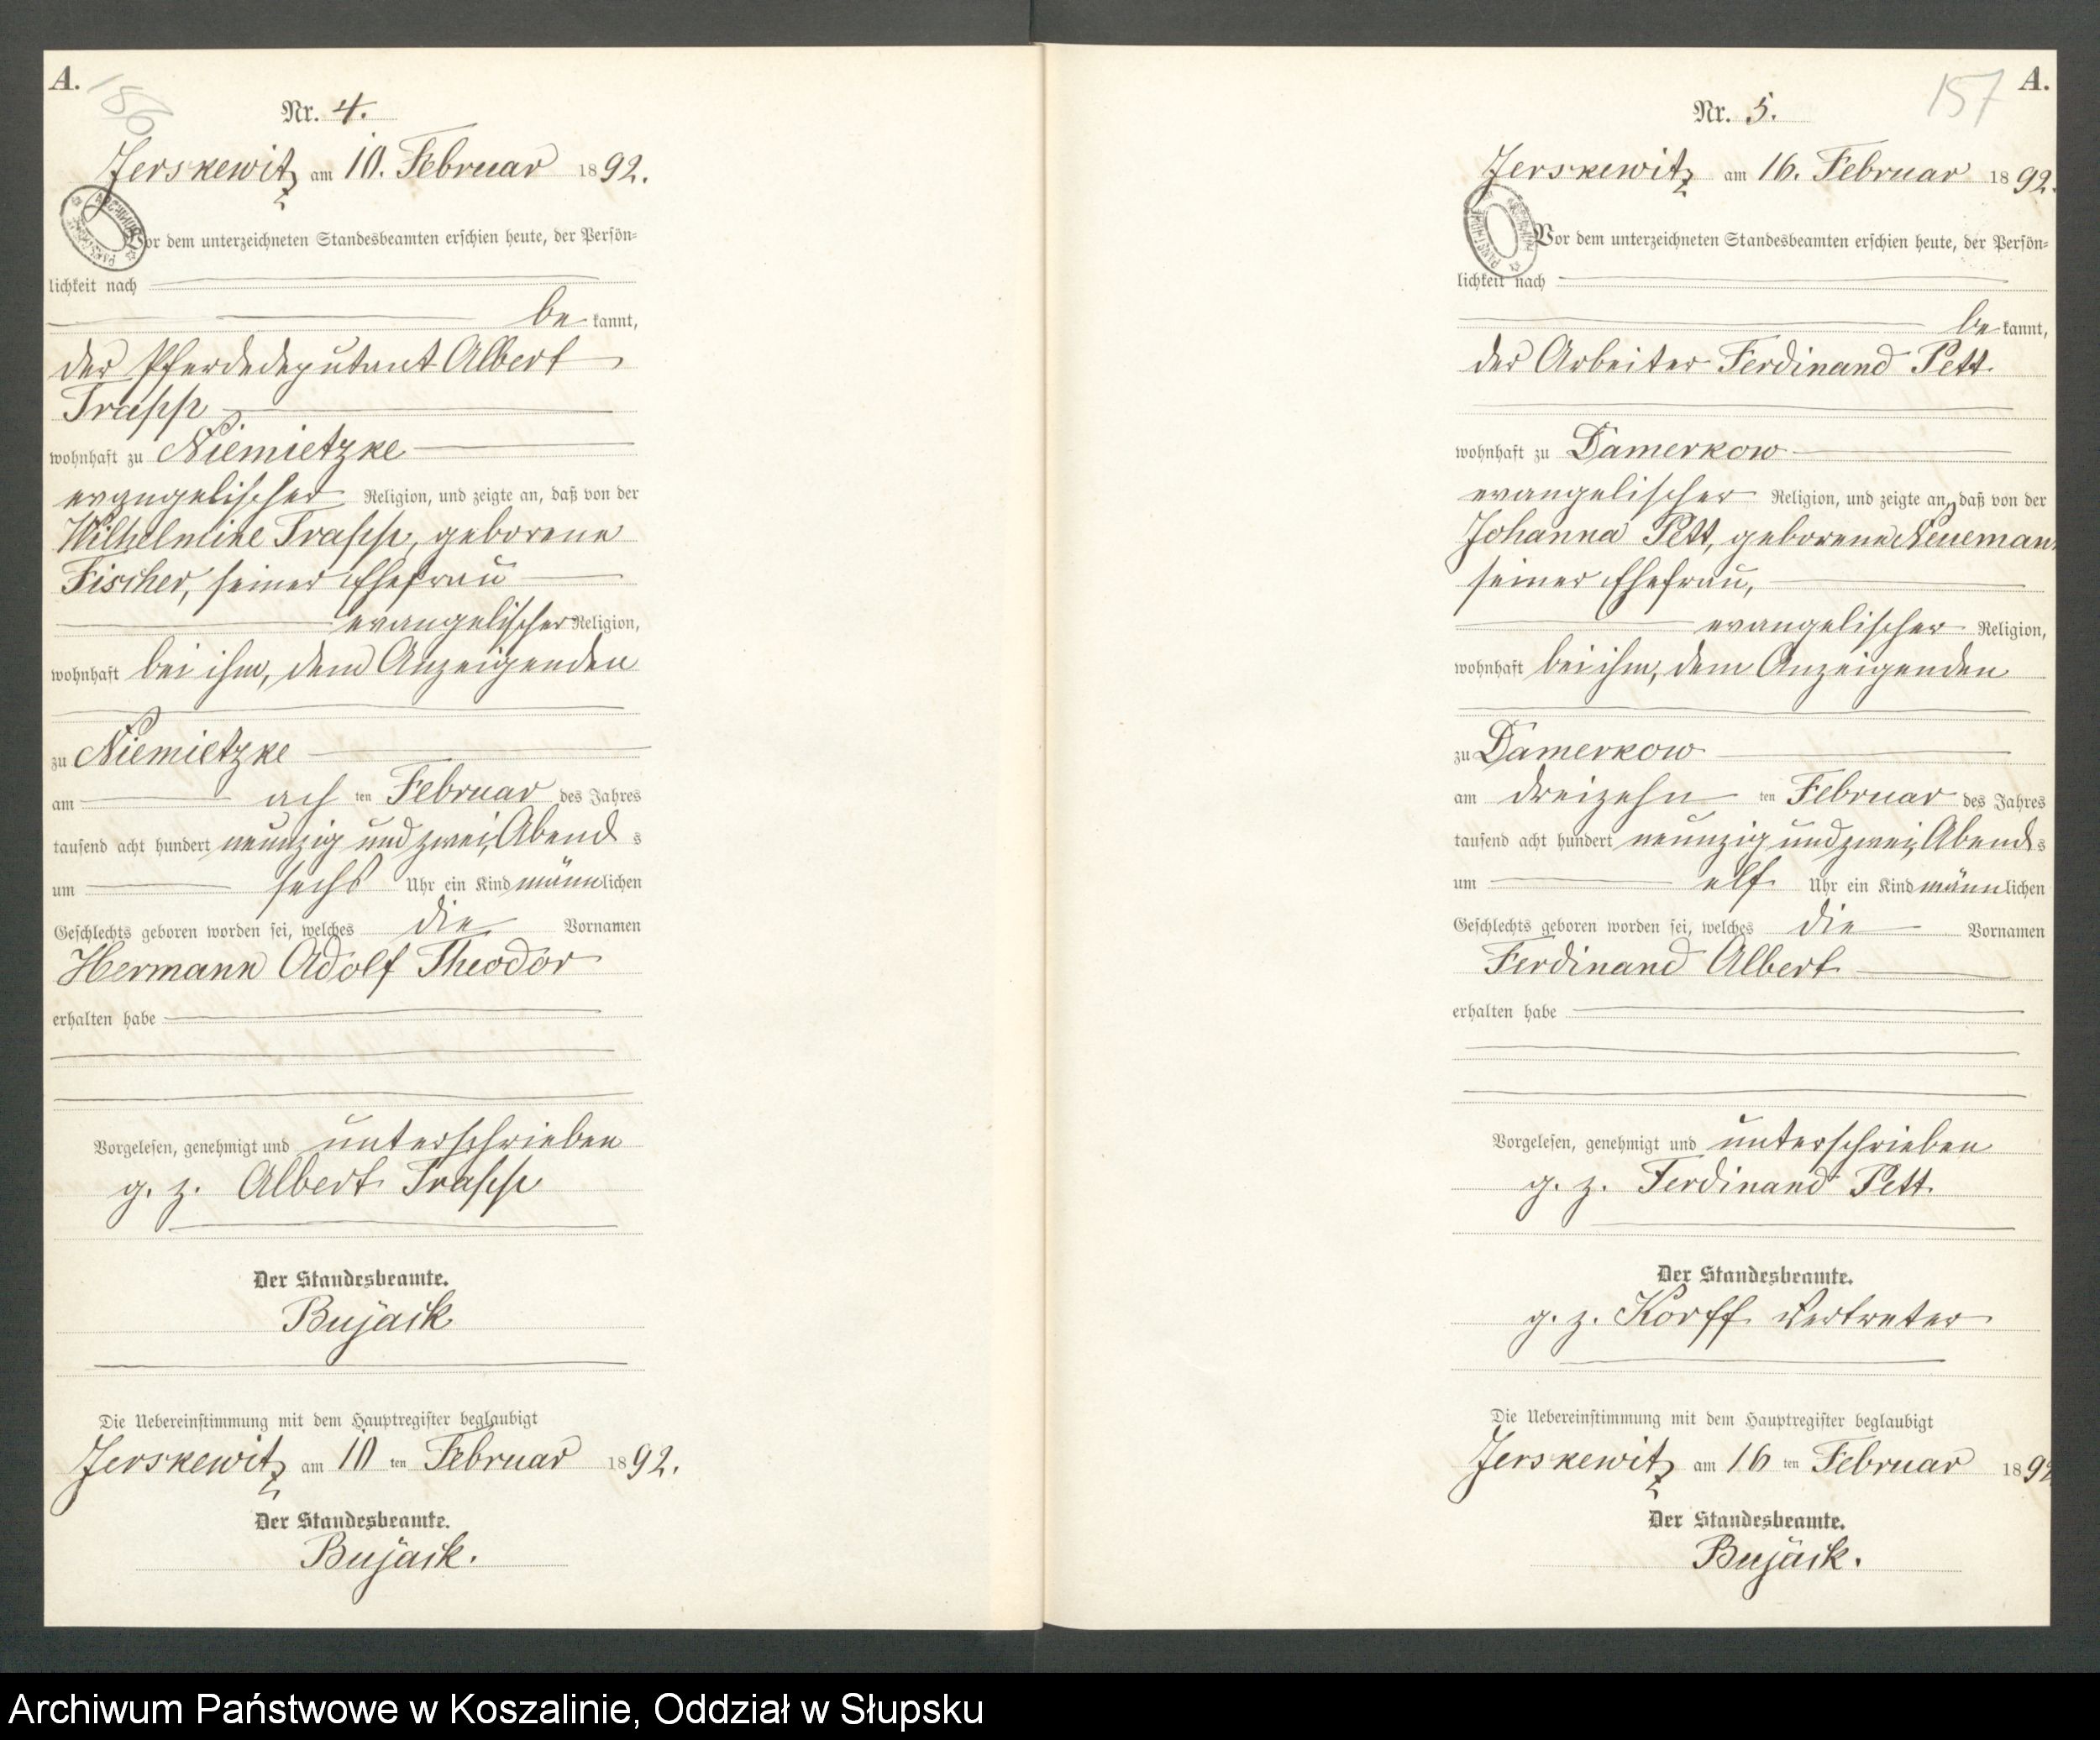 A.
156
Nr. 4.
Jerskewitz am 10. Februar 1892.
Vor dem unterzeichneten Standesbeamten erschien heute, der Persön-
lichkeit nach
be kannt,
der Pferdedeputant Albert
Trapp
wohnhaft zu Niemietzke
evangelischer Religion, und zeigte an, daß von der
Wilhelmine Trapp, geborene
Fischer, seiner Ehefrau
evangelischer Religion,
wohnhaft bei ihm, dem Anzeigenden
zu Niemietzke
am ach ten Februar des Jahres
tausend acht hundert neunzig und zwei, Abend s
um sechs Uhr ein Kind männlichen
Geschlechts geboren worden sei, welches die Vornamen
Hermann Adolf Theodor
erhalten habe
Vorgelesen, genehmigt und unterschrieben
g. z. Albert Trapp
Der Standesbeamte.
Bujack
Die Uebereinstimmung mit dem Hauptregister beglaubigt
Jerskewitz am 10 ten Februar 1892.
Der Standesbeamte.
Bujack.
157
A.
Nr. 5.
Jerskewitz am 16. Februar 1892.
Vor dem unterzeichneten Standesbeamten erschien heute, der Persön-
lichkeit nach
be kannt,
der Arbeiter Ferdinand Pett
wohnhaft zu Damerkow
evangelischer Religion, und zeigte an, daß von der
Johanna Pett, geborene Neueman
seiner Ehefrau,
evangelischer Religion,
wohnhaft bei ihm, dem Anzeigenden
zu Damerkow
am dreizehn ten Februar des Jahres
tausend acht hundert neunzig und zwei, Abend s
um elf Uhr ein Kind männlichen
Geschlechts geboren worden sei, welches die Vornamen
Ferdinand Albert
erhalten habe
Vorgelesen, genehmigt und unterschrieben
g. z. Ferdinand Pett.
Der Standesbeamte.
g. z. Korff Vertreter
Die Uebereinstimmung mit dem Hauptregister beglaubigt
Jerskewitz am 16 ten Februar 1892
Der Standesbeamte.
Bujack.
Archiwum Państwowe w Koszalinie, Oddział w Słupsku